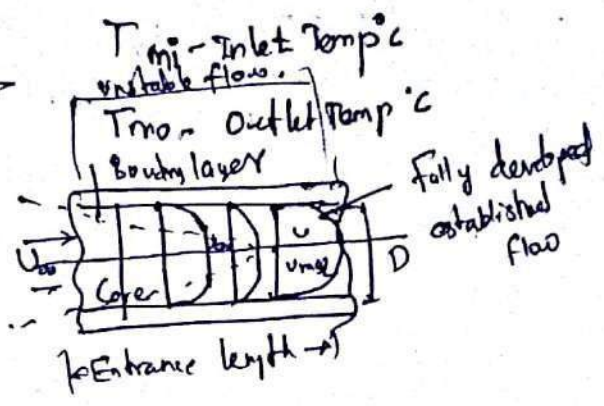 Tmi - Inlet Temp °C
unstable flow.
Tmo - Outlet Temp °C
Boundry layer
Fully developed
established
flow
U∞
U
Umax
D
Corer
Entrance length